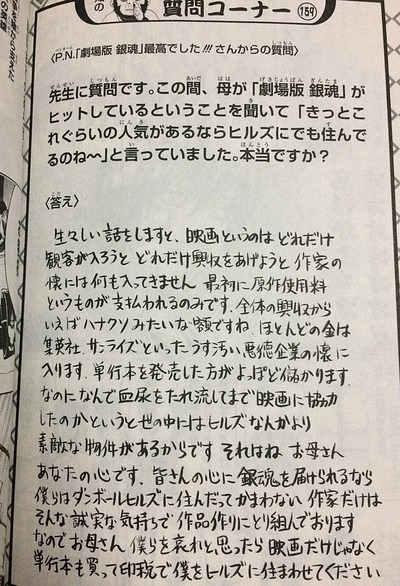 質問コーナー 159
〈P.N.「劇場版 銀魂」最高でした!!!さんからの質問〉
先生に質問です。この間、母が「劇場版 銀魂」が
ヒットしているということを聞いて「きっとこ
れぐらいの人気があるならヒルズにでも住んで
るのね〜」と言っていました。本当ですか？
〈答え〉
生々しい話をしますと、映画というのは どれだけ
観客が入ろうと どれだけ興収をあげようと 作家の
懐には何も入ってきません 最初に原作使用料
というものが支払われるのみです。全体の興収から
いえばハナクソみたいな額ですね。ほとんどの金は
集英社、サンライズといったうす汚い悪徳企業の懐に
入ります。単行本を発売した方がよっぽど儲かります。
なのになんで血尿をたれ流してまで映画に協力
したのかというと世の中にはヒルズなんかより
素敵な物件があるからです それはね お母さん
あなたの心です。皆さんの心に 銀魂を届けられるなら
僕らはダンボールヒルズに住んだってかまわない 作家だけは
そんな誠実な気持ちで 作品作りにとり組んでおります
なのでお母さん 僕らを哀れと思ったら 映画だけじゃなく
単行本も買って印税で僕をヒルズに住まわせてください